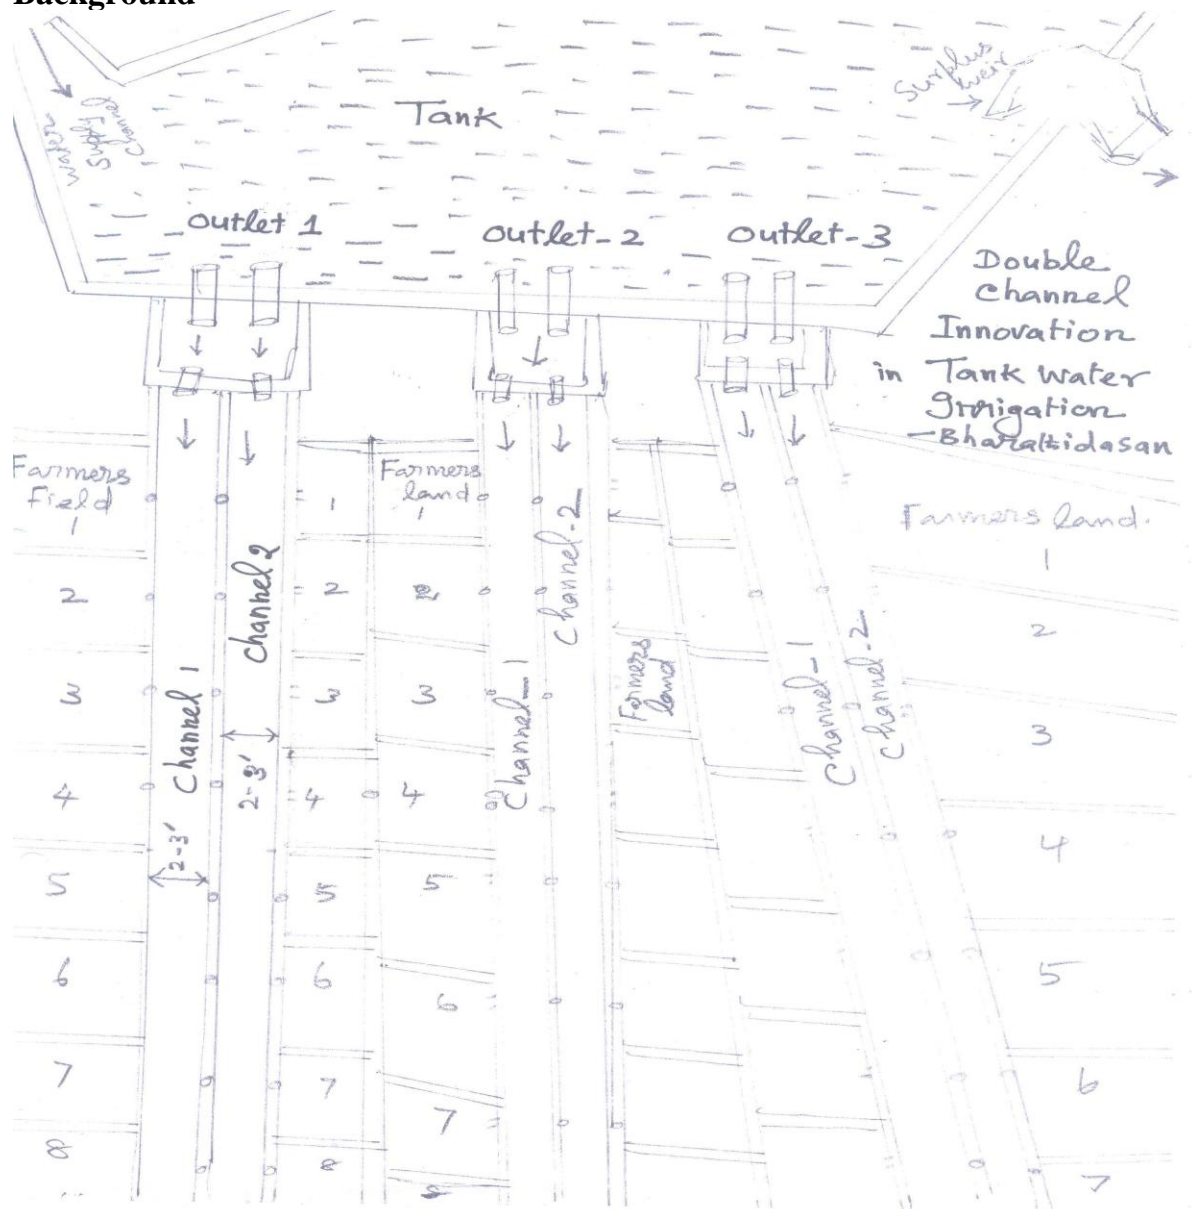 Background
Tank
Surplus
weir
water
Supply
Channel
outlet 1
outlet-2
outlet-3
Double
Channel
Innovation
in Tank water
Irrigation
-Bharathidasan
Farmers
Field
1
2
3
4
5
6
7
8
Channel 1
2-3'
Channel 2
2-3'
1
2
3
4
5
6
7
8
Farmers
land
1
2
3
4
5
6
7
8
Channel-1
Channel-2
Farmers
land
Channel-1
Channel-2
Farmers land.
1
2
3
4
5
6
7